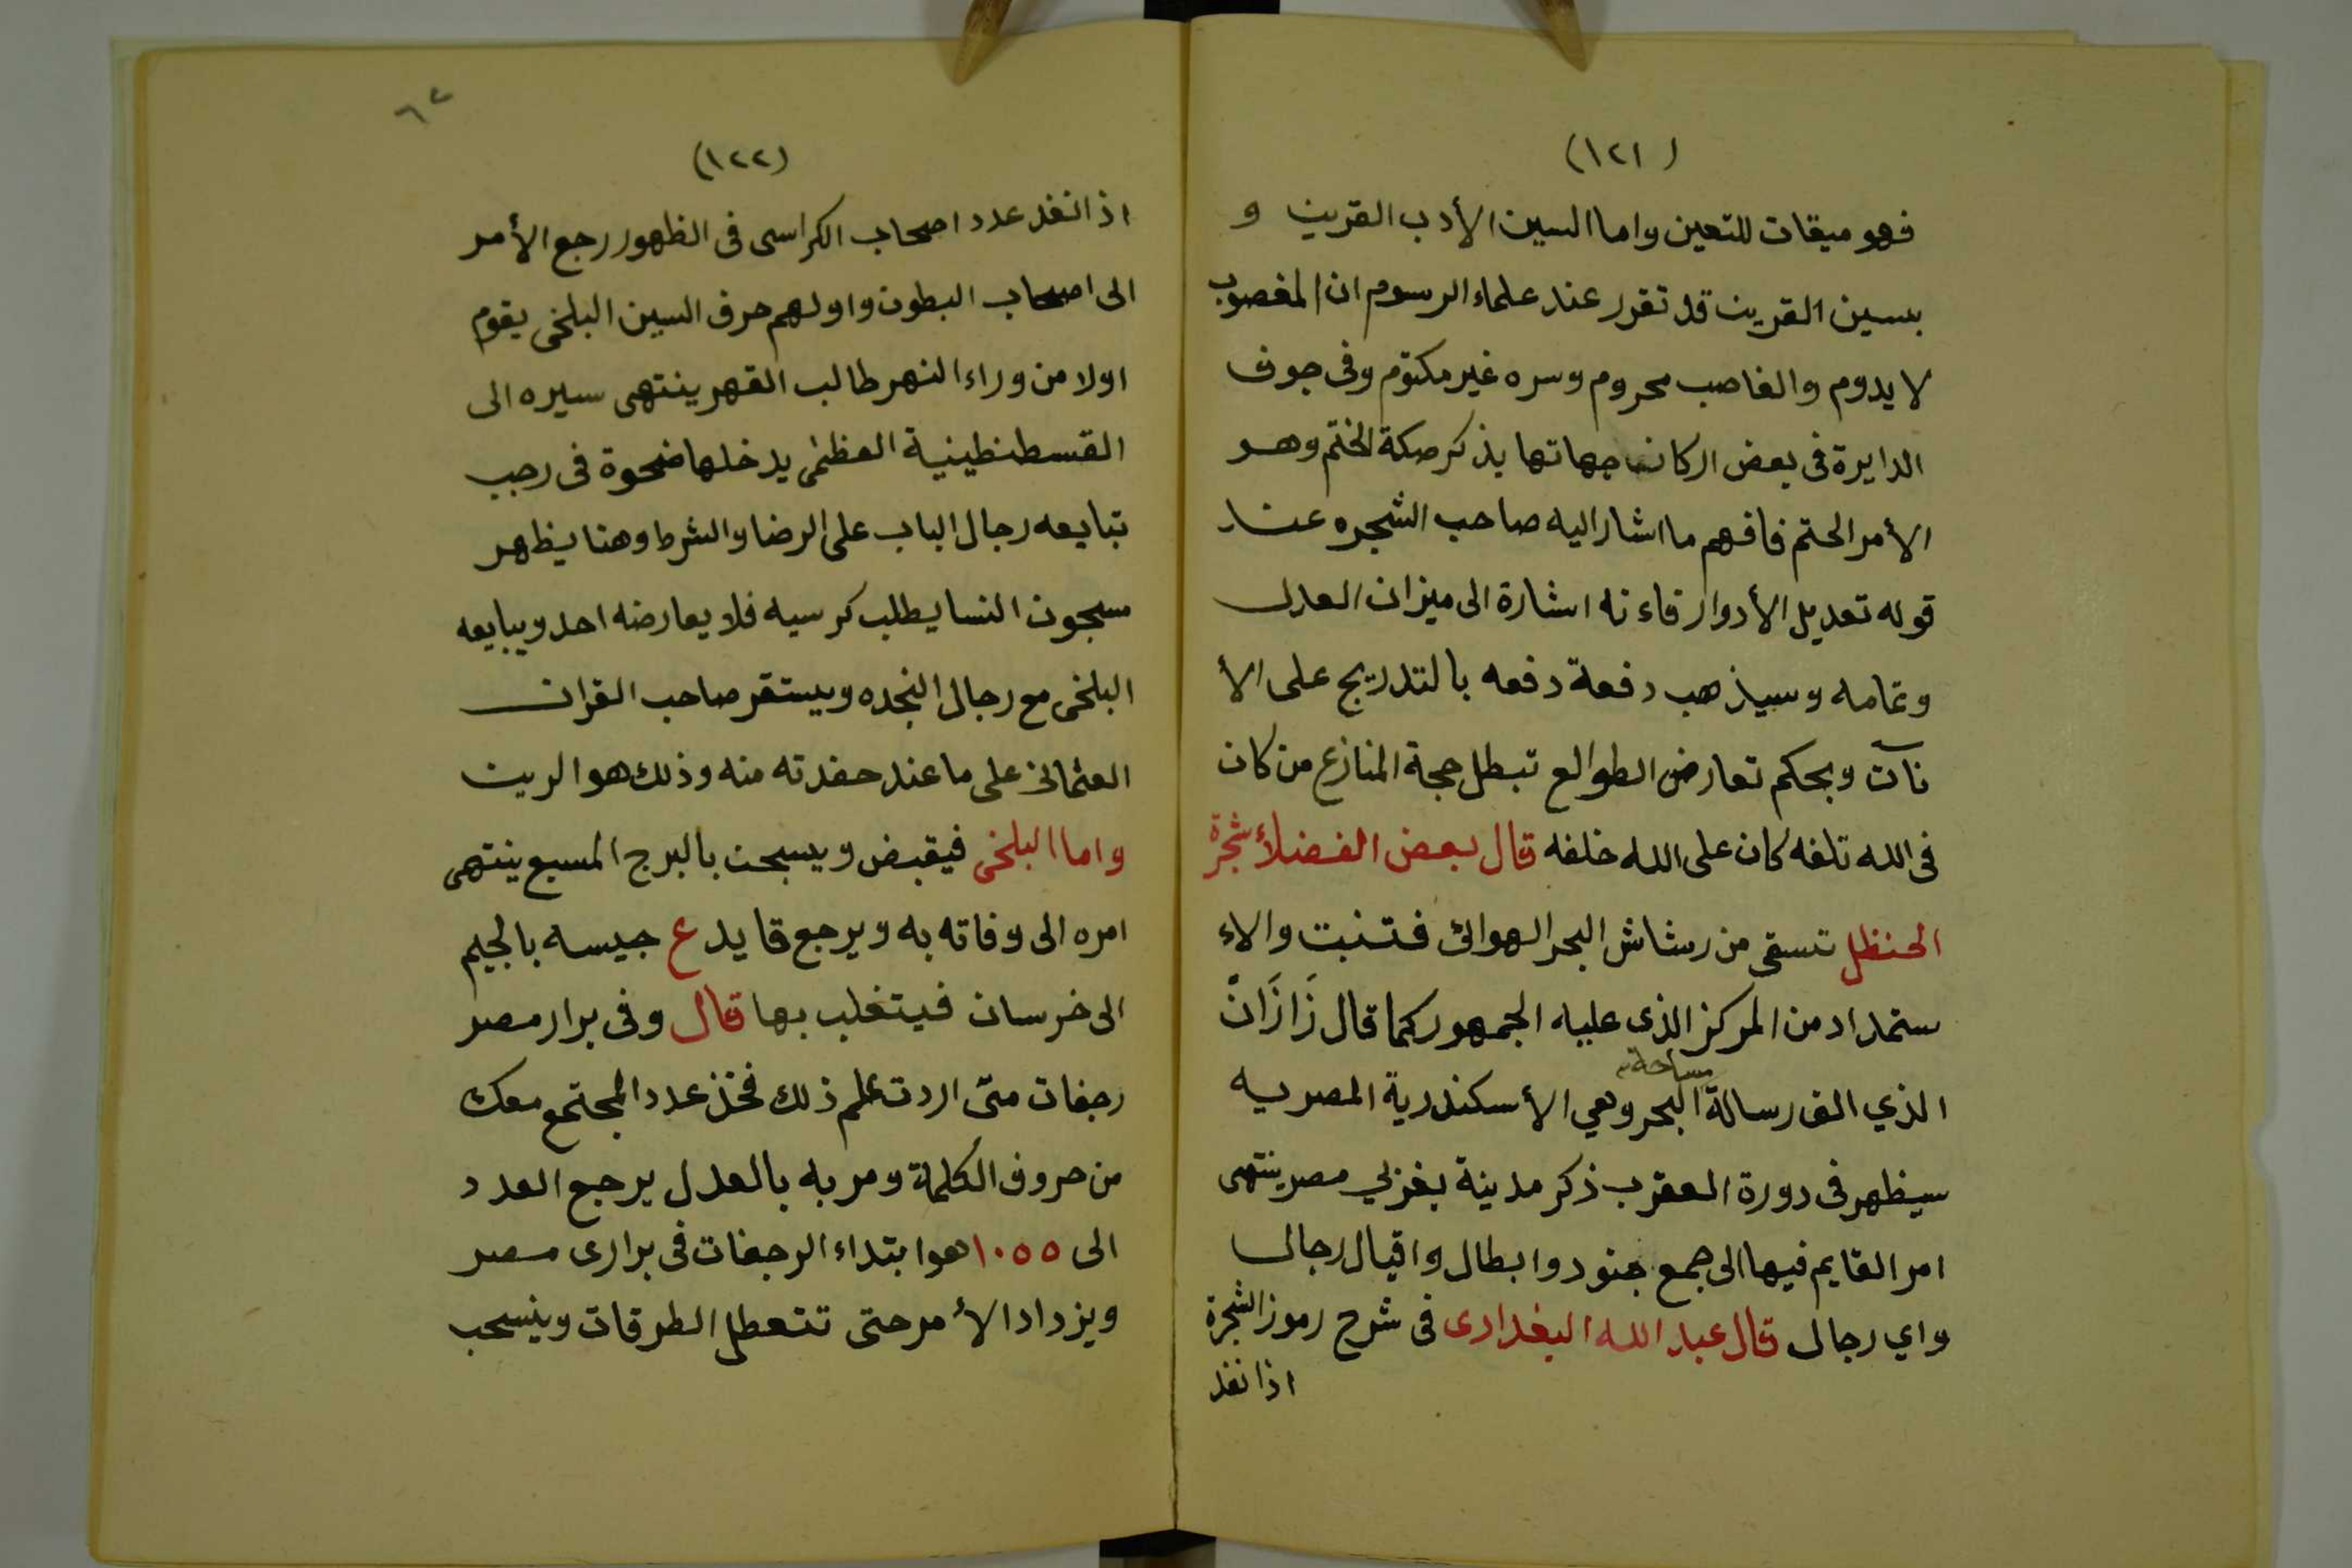 (١٢١)
فهو ميقات للتعين واما السين الأدب القرين و
بسين القرين قد تقرر عند علماء الرسوم ان المغصوب
لا يدوم والغاصب محروم وسره غير مكتوم وفى جوف
الدايرة فى بعض اركان جهاتها يذكر صكة الختم وهو
الأمر الحتم فافهم ما اشار اليه صاحب الشجره عند
قوله تعديل الأدوار فاءنه اشارة الى ميزان العدل
وتمامه وسيذهب دفعة دفعه بالتدريج على الأ
نآت وبحكم تعارض الطوالع تبطل حجة المنازع من كان
فى الله تلفه كان على الله خلفه قال بعض الفضلأ شجرة
الحنظل تسقى من رشاش البحر الهوائ فتنبت والاء
ستمداد من المركز الذى عليه الجمهور كما قال زَازَانْ
مساحة
الذي الف رسالة البحر وهي الأسكندرية المصريه
سيظهر فى دورة العقرب ذكر مدينة بغربي مصر ينتهى
امر القايم فيها الى جمع جنود وابطال واقيال رجال
واي رجال قال عبد الله البغدادى فى شرح رموز الشجرة
اذا نفد
٦٢
(١٢٢)
اذا نفد عدد اصحاب الكراسى فى الظهور رجع الأمر
الى اصحاب البطون واولهم حرف السين البلخى يقوم
اولا من وراء النهر طالب القهر ينتهى سيره الى
القسطنطينية العظمى يدخلها ضحوة فى رجب
تبايعه رجال الباب على الرضا والشرط وهنا يظهر
مسجون النسا يطلب كرسيه فلا يعارضه احد ويبايعه
البلخى مع رجال النجده ويستقر صاحب القران
العثمانى على ما عند حفدته منه وذلك هو الرين
واما البلخى فيقبض ويسجن بالبرج المسبع ينتهى
امره الى وفاته به ويرجع قايد ع جيسه بالجيم
الى خرسان فيتغلب بها قال وفى برار مصر
رجفات متى اردت علم ذلك فخذ عدد المجتمع معك
من حروف الكلمة ومر به بالعدل يرجع العدد
الى ١٠٥٥ هو ابتداء الرجفات فى برارى مصر
ويزداد الأمر حتى تتعطل الطرقات وينسحب